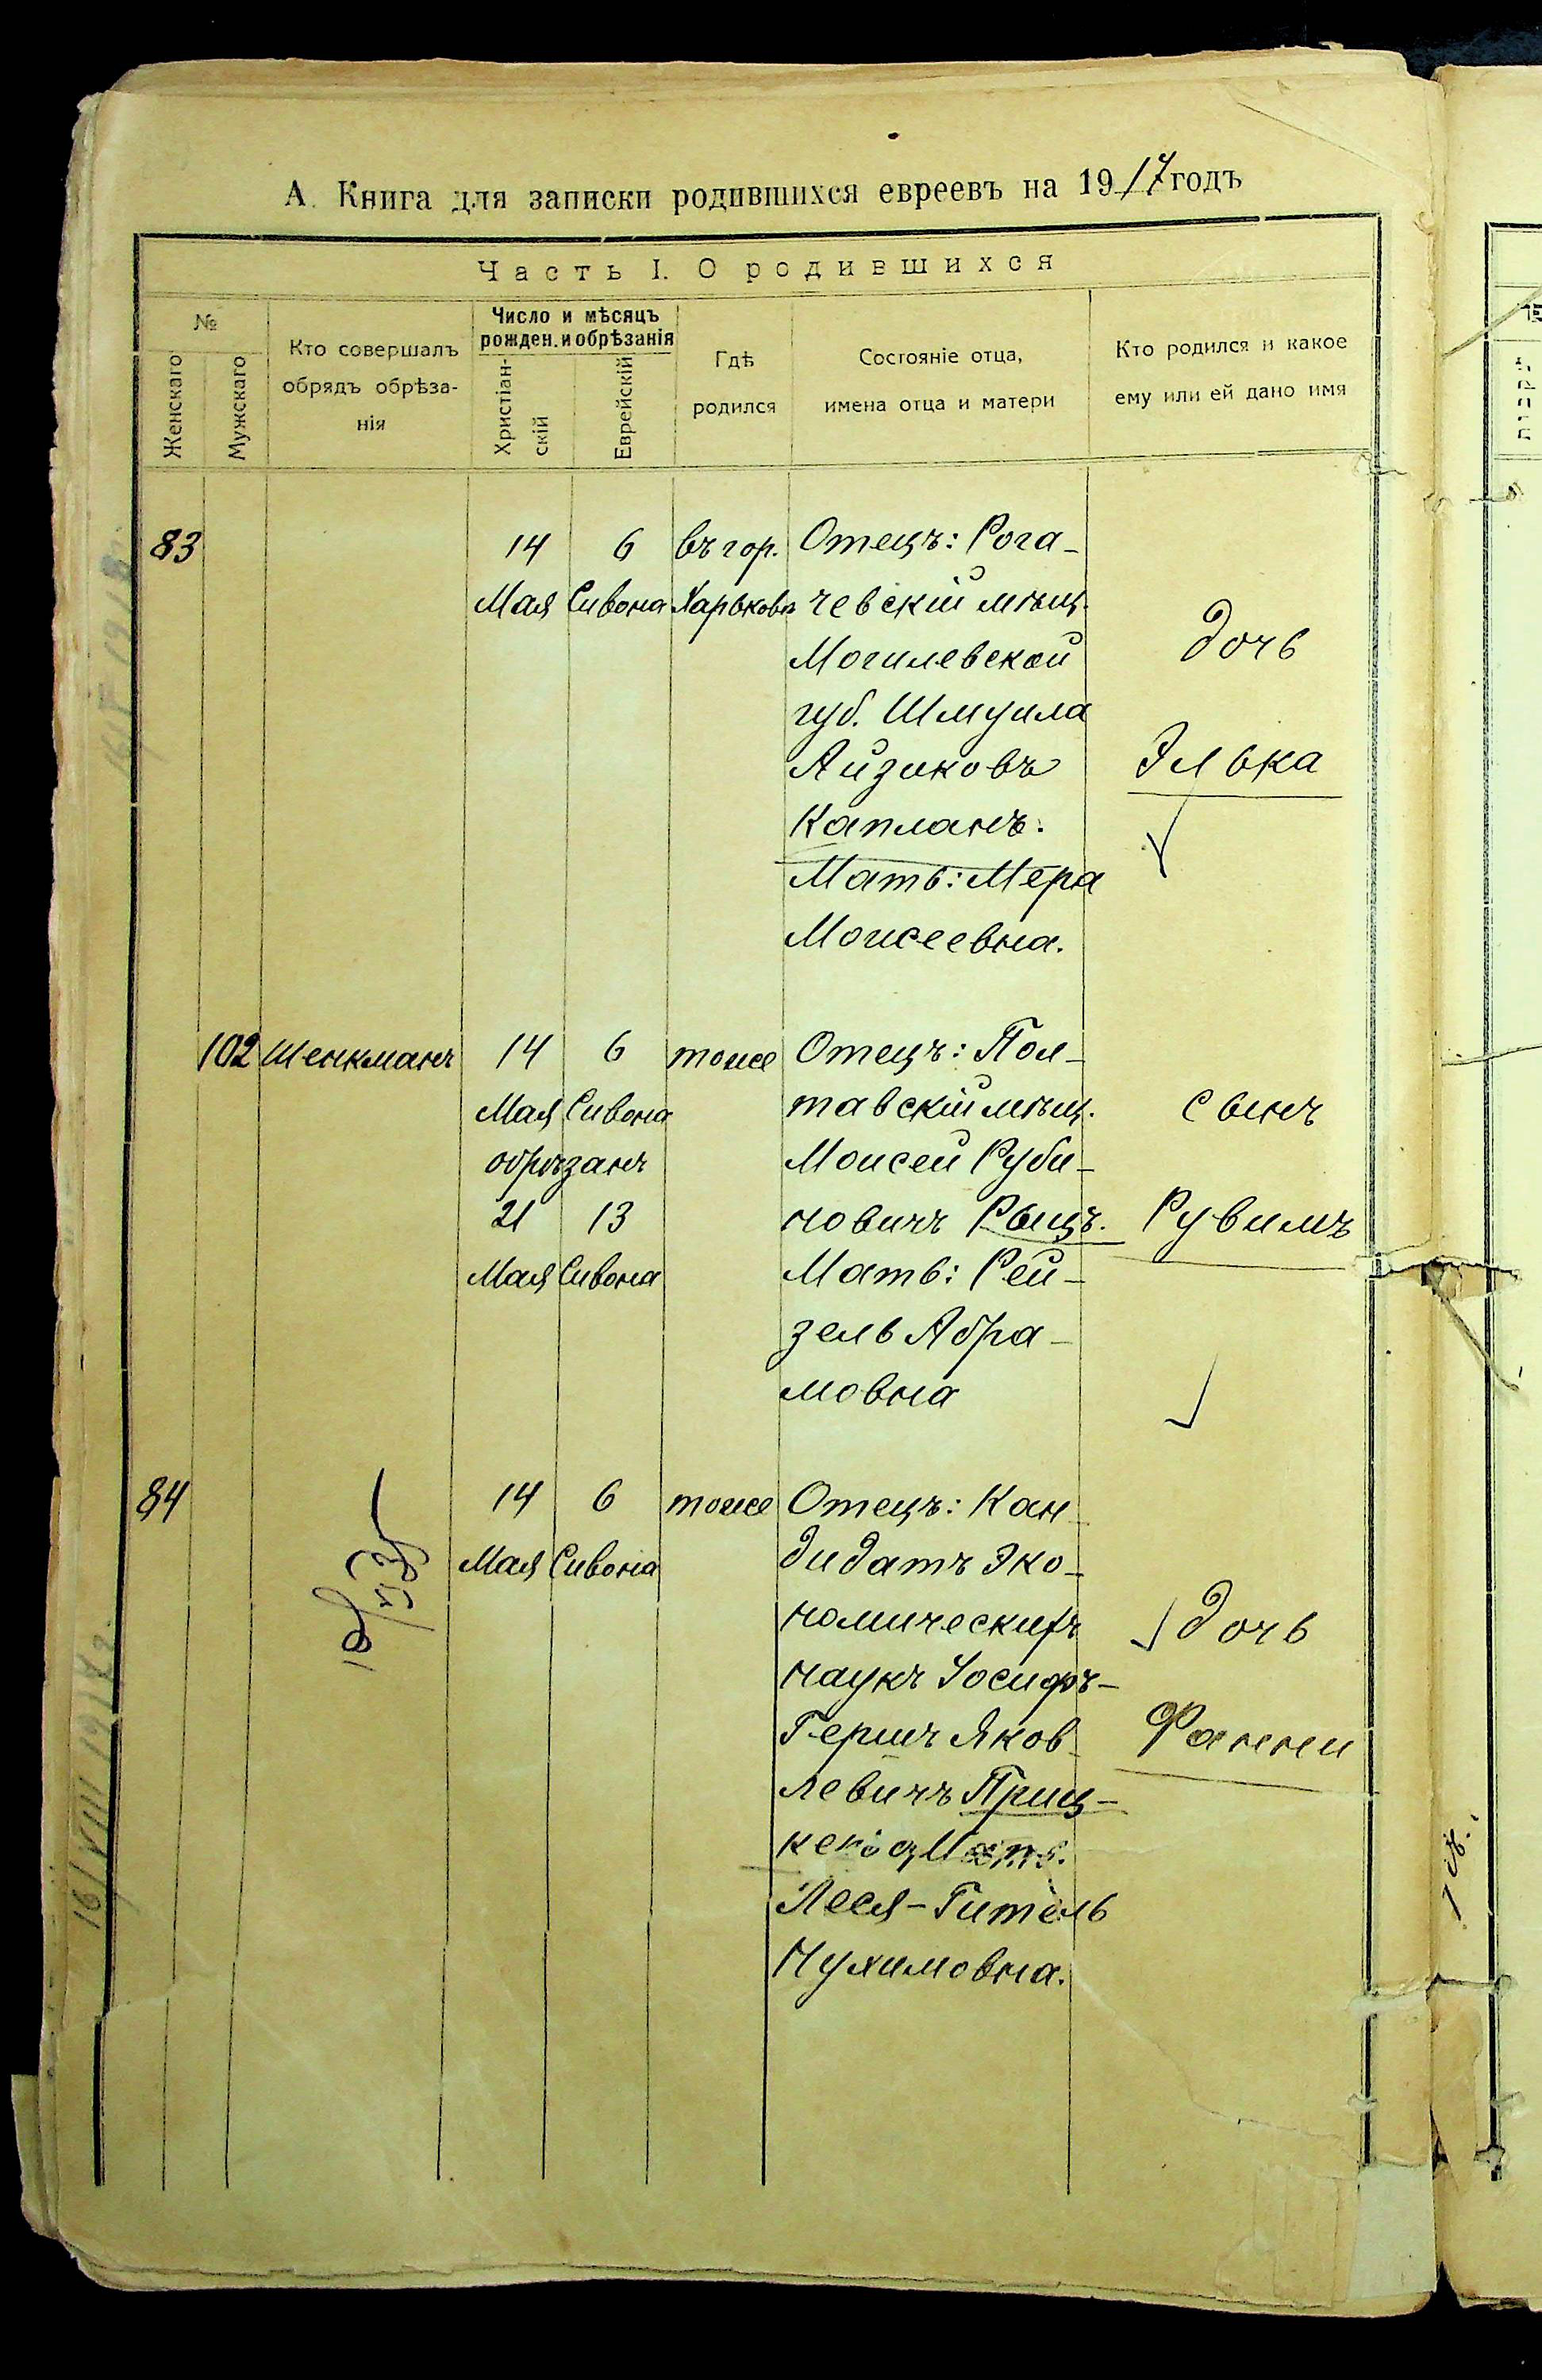 А. Книга для записки родившихся евреевъ на 1917 годъ
Часть I. О родившихся
№
Женскаго
Мужскаго
Кто совершалъ
обрядъ обрѣза-
нія
Число и мѣсяцъ
рожден. и обрѣзанія
Христіан-
скій
Еврейскій
Гдѣ
родился
Состояніе отца,
имена отца и матери
Кто родился и какое
ему или ей дано имя
83
14
Мая
6
Сивона
въ гор.
Харьковѣ
Отецъ: Рога-
чевскій мѣщ.
Могилевской
губ. Шмуила
Айзиковъ
Капланъ.
Мать: Мера
Моисеевна.
дочь
Элька
102
Шенкманъ
14
Мая
6
Сивона
обрѣзанъ
21
Мая
13
Сивона
тоже
Отецъ: Пол-
тавскій мѣщ.
Моисей Руби-
новичъ Рыцъ.
Мать: Рей-
зель Абра-
мовна
сынъ
Рувимъ
84
14
Мая
6
Сивона
тоже
Отецъ: Кан
дидатъ Эко-
номическихъ
наукъ Іосифъ-
Гершъ Яков
левичъ Приц-
Мать.
Леся-Гитель
Нухимовна.
дочь
Фанни
16/VIII 1918.